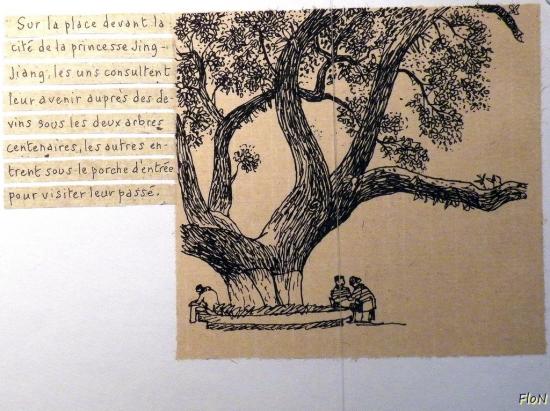 Sur la place devant la
cité de la princesse Jing-
Jiang, les uns consultent
leur avenir auprès des de-
vins sous les deux arbres
centenaires, les autres en-
trent sous le porche d'entrée
pour visiter leur passé.
FloN